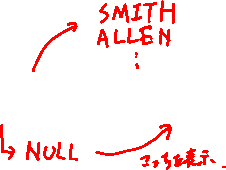 SMITH
ALLEN
⋮
NULL
こっちを表示.